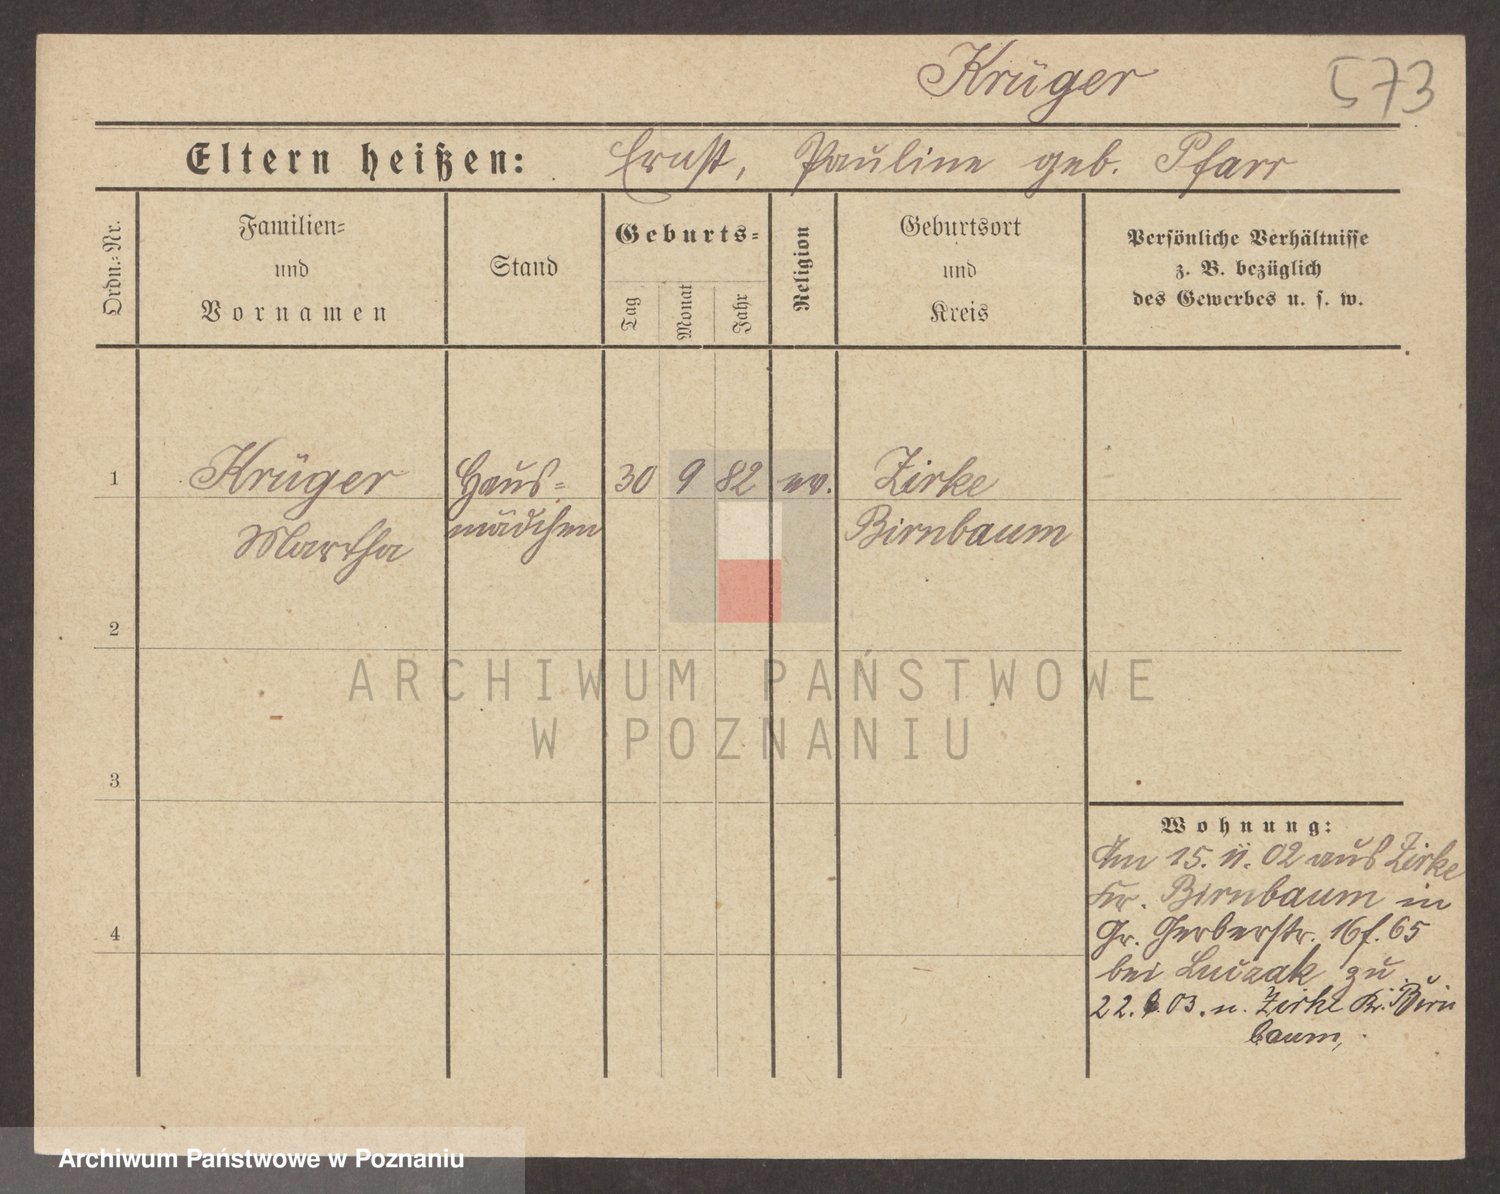 Krüger 573
Eltern heißen: Ernst, Pauline geb. Pfarr
Ordn.-Nr.
Familien-
und
Vornamen
Stand
Geburts-
Tag
Monat
Jahr
Religion
Geburtsort
und
Kreis
Persönliche Verhältnisse
z. B. bezüglich
des Gewerbes u. s. w.
1 Krüger Haus- 30 9 82 ev. Zirke
Martha mädchen Birnbaum
2
3
4
Wohnung:
Am 15. 11. 02 aus Zirke
Kr. Birnbaum in
Gr. Gerberstr. 16 f. 65
bei Luczak zu
22. 03. n. Zirke Kr. Birn
baum,
ARCHIWUM PAŃSTWOWE
W POZNANIU
Archiwum Państwowe w Poznaniu